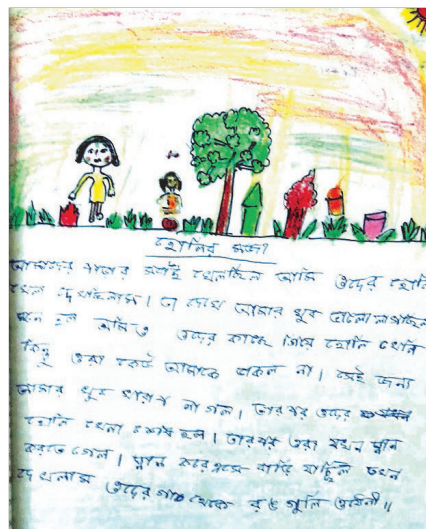 হোলির মজা
আমাদের পাড়ার সবাই খেলছিল আমি ওদের হোলি
খেলা দেখছিলাম। তা দেখে আমার খুব ভালো লাগছিল
মনে হল আমিও ওদের কাছে গিয়ে হোলি খেলি
কিন্তু ওরা কেউ আমাকে ডাকল না। সেই জন্য
আমার খুব খারাপ লাগল। তারপর ওদের
হোলি খেলা শেষ হল। তারপর ওরা যখন স্নান
করতে গেল। স্নান করে এসে বাড়ি যাচ্ছিল তখন
দেখলাম ওদের গা থেকে রঙ গুলি ওঠেনী॥